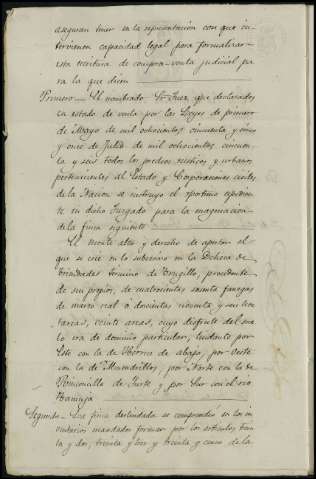 aseguran tener en la representacion con que in-
tervienen capacidad legal para formalizar
esta escritura de compra-venta judicial pa
ra la que dicen
Primero — El nombrado Sr. Juez, que declarados
en estado de venta por las Leyes de primero
de Mayo de mil ochocientos cincuenta y cinco
y once de Julio de mil ochocientos cincuen
ta y seis todos los predios rusticos y urbanos
pertenecientes al Estado y Corporaciones civiles
de la Nacion se instruyó el oportuno expedien
te en dicho Juzgado para la enagenacion
de la finca siguiente
El monte alto y derecho de apostar el
que se crie en lo subarrio en la Dehesa de
termino de Trugillo, procedente
de sus propios, de cuatrocientas sesenta fanegas
de marco real o doscientas noventa y seis hec
tareas, veinte areas, cuyo disfrute del sue
lo era de dominio particular, lindante por
Este con la de Torre de abajo, por Oeste
con la de por Norte con la de
de Fuste y por Sur con el rio
Segundo — La finca deslindada se comprendio en los in
ventarios mandados formar por los articulos trein
ta y dos, treinta y tres y treinta y cinco de la